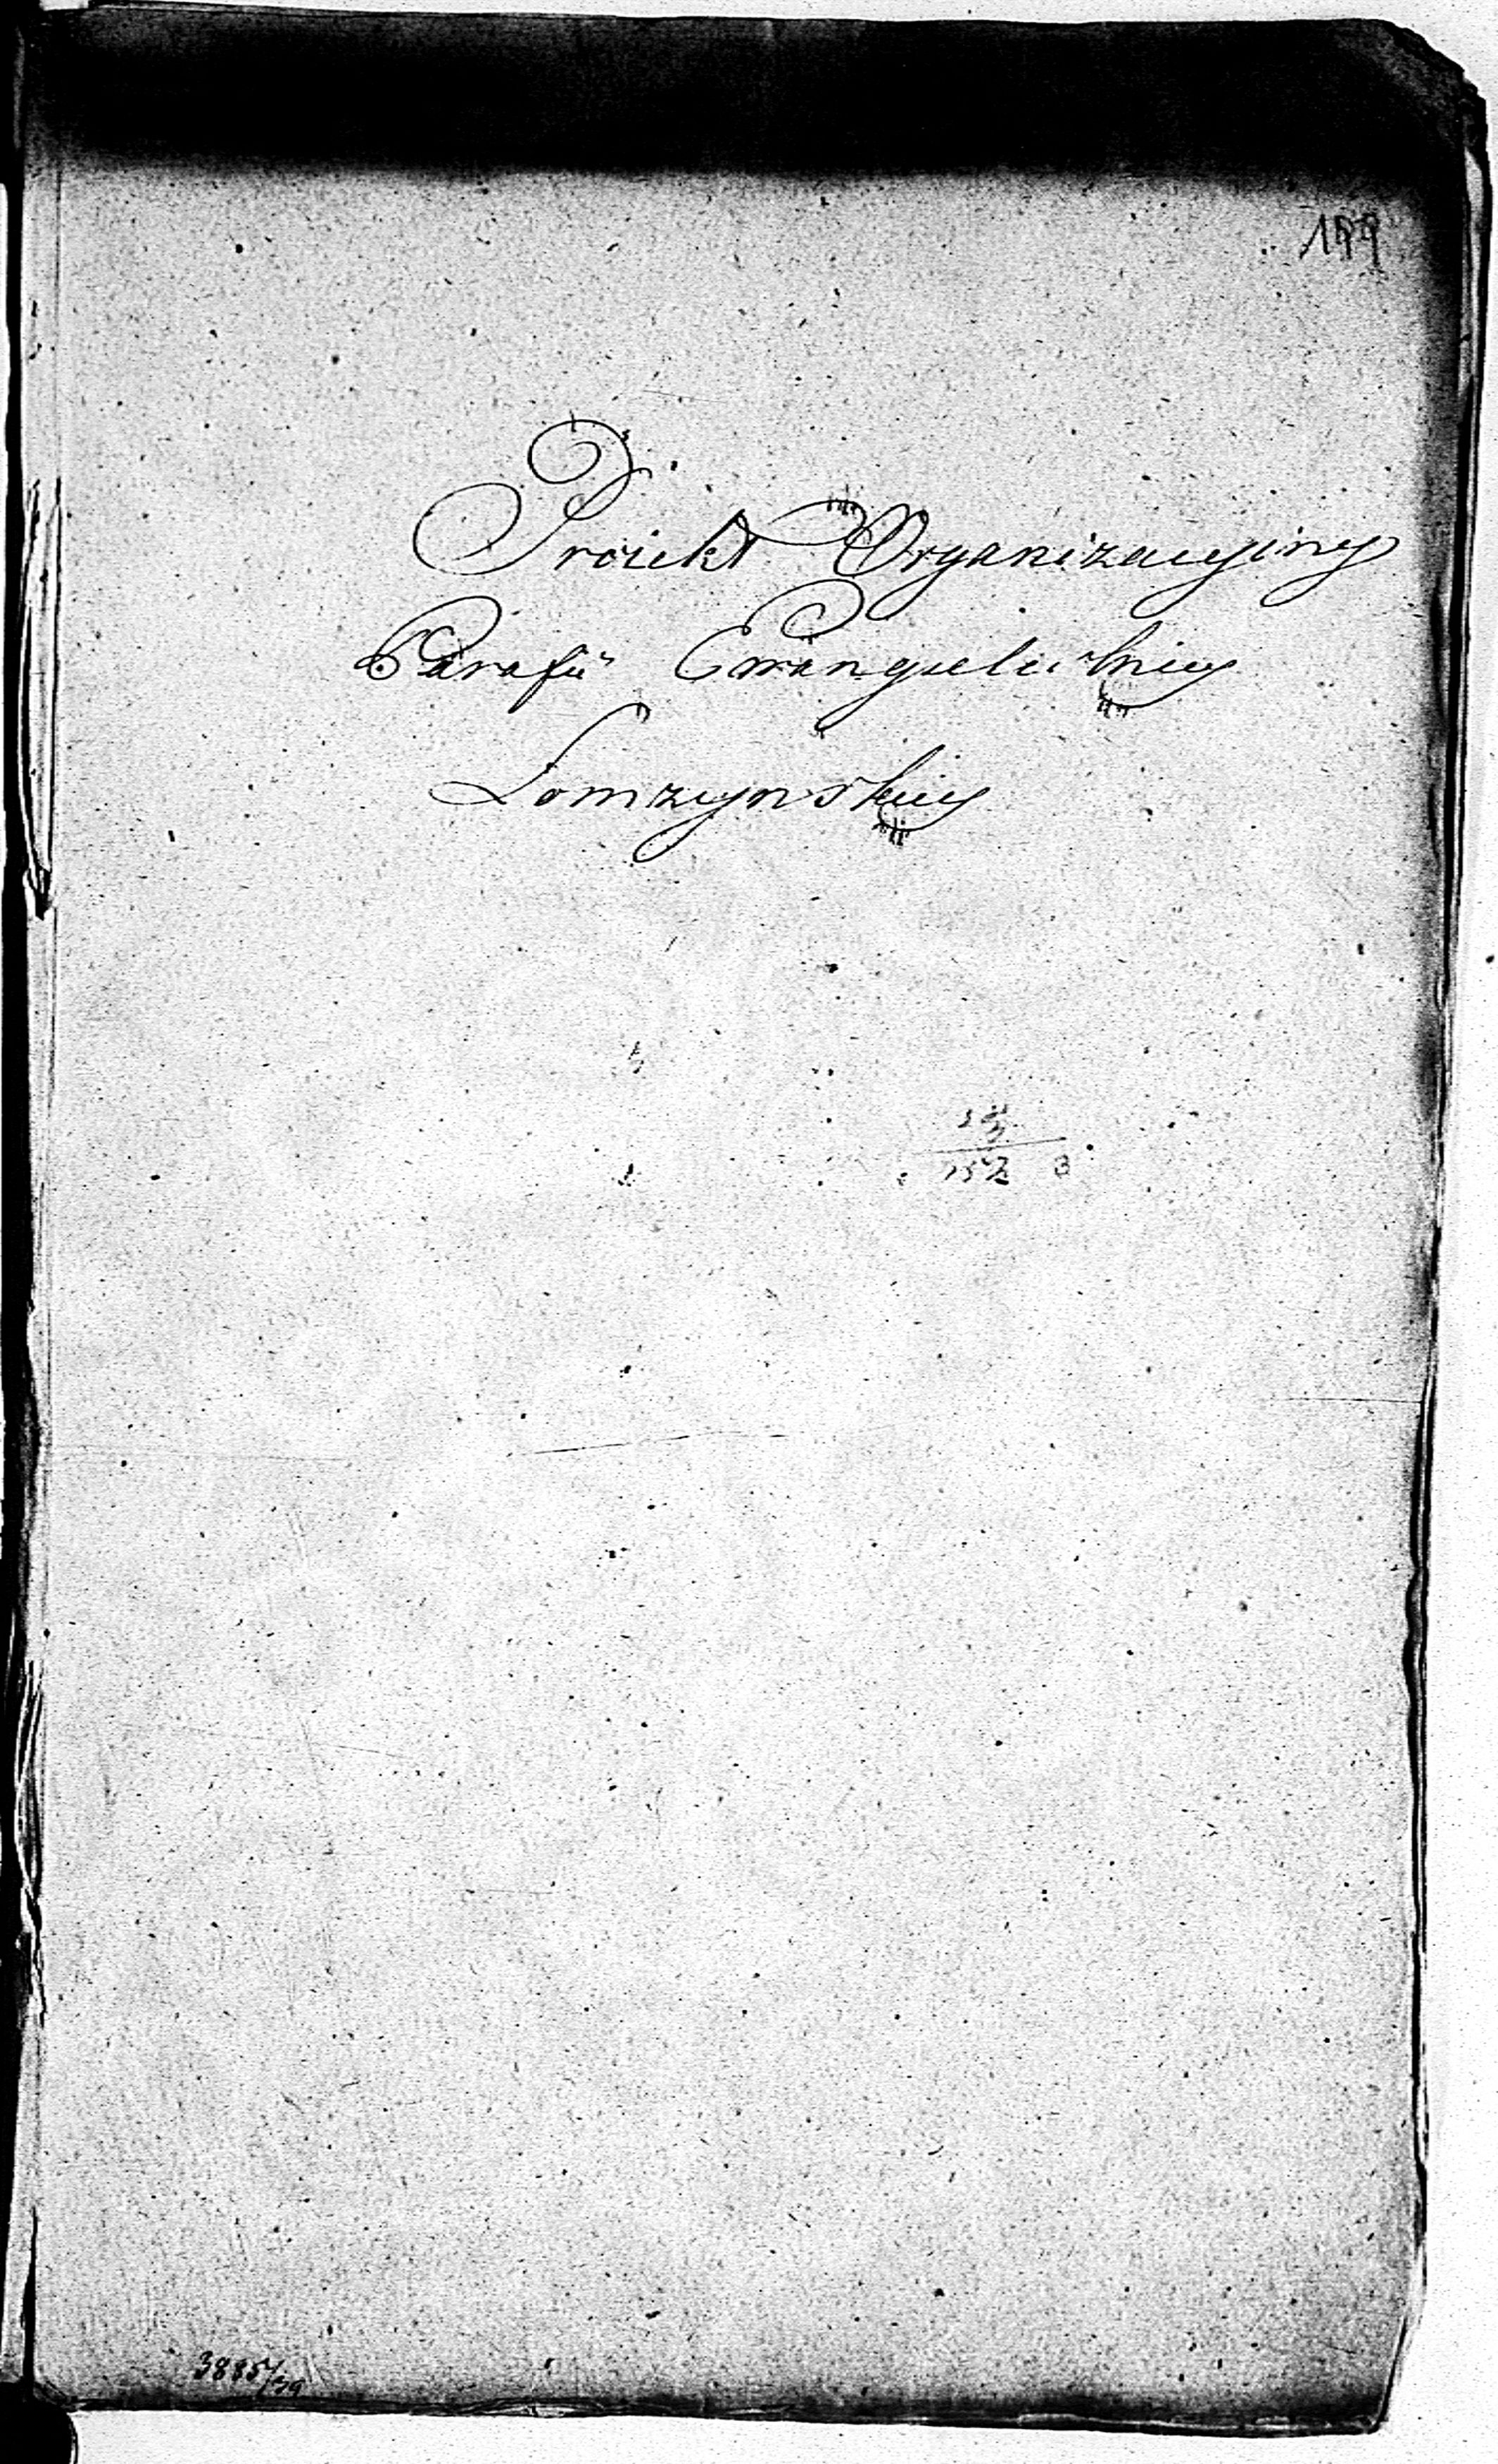 Proiekt Organizacyiny
Parafii Ewangelickiey
Lomzynskiey
3885/39